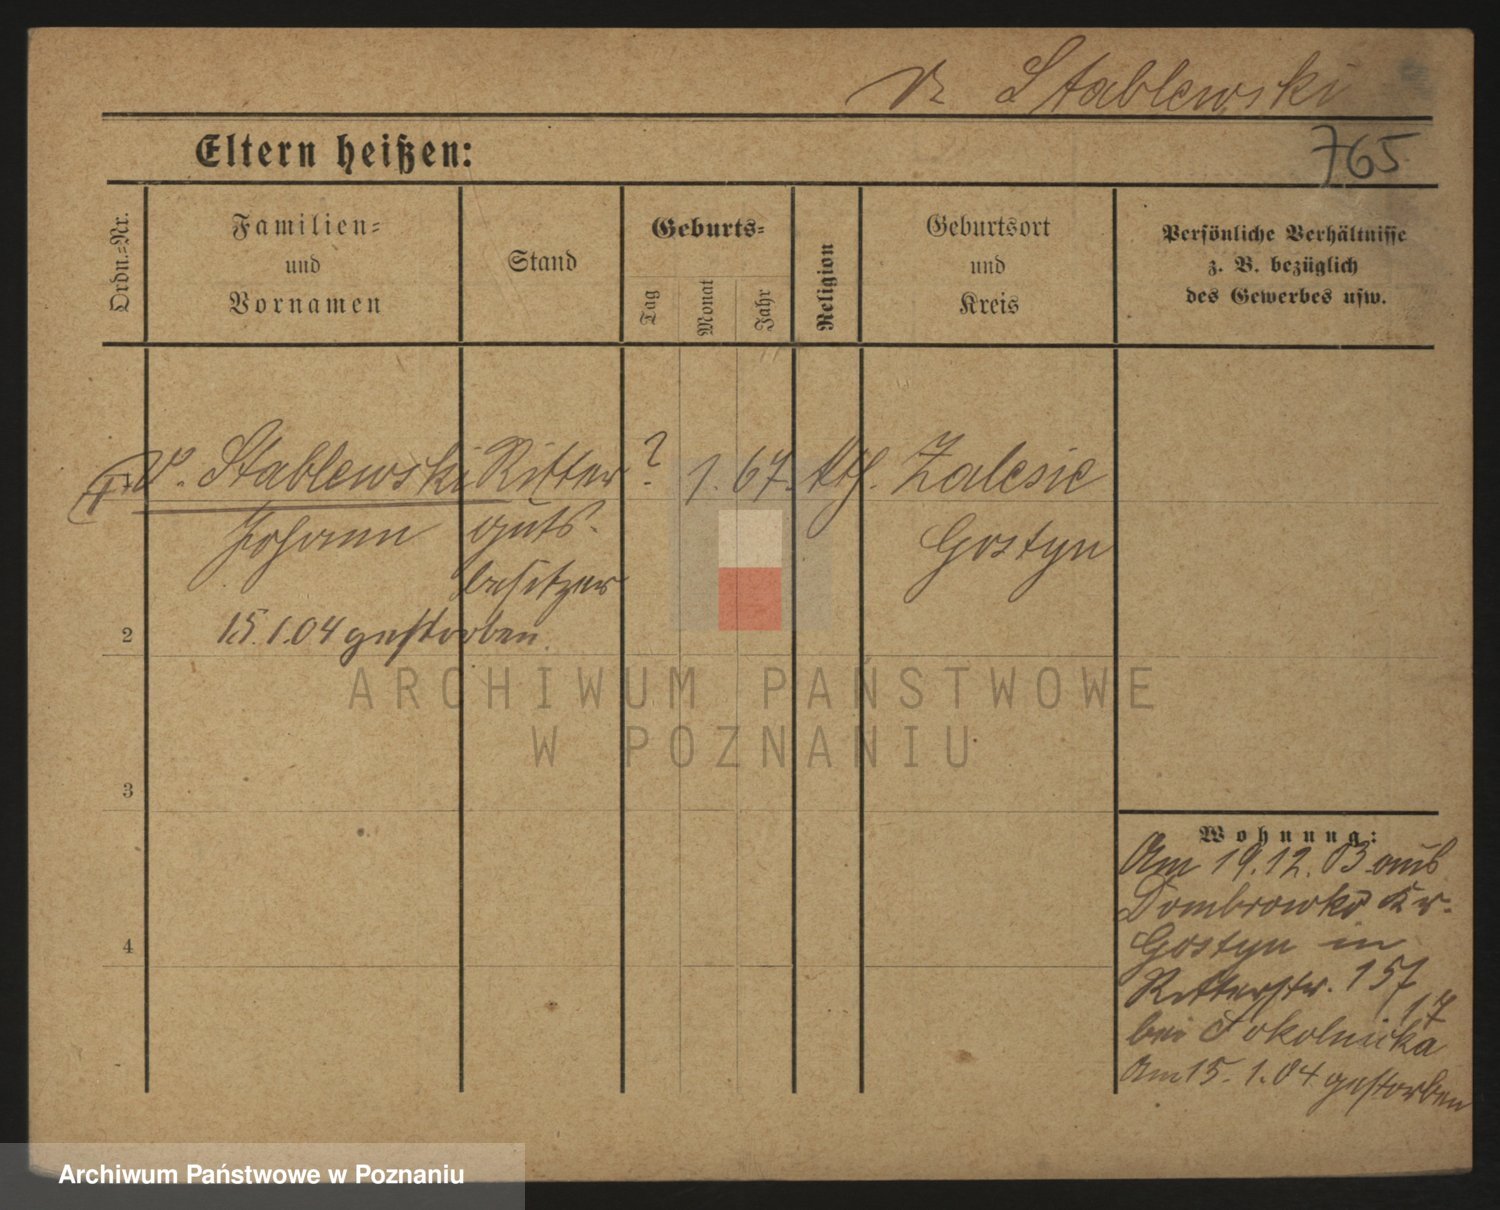 v. Stablewski
765
Eltern heißen:
Ordn.-Nr.
Familien-
und
Vornamen
Stand
Geburts-
Tag
Monat
Jahr
Religion
Geburtsort
und
Kreis
Persönliche Verhältnisse
z. B. bezüglich
des Gewerbes usw.
v. Stablewski Ritter ? 1. 67. kth. Zalesie
Johann guts- Gostyn
besitzer
2 15.1.04 gestorben.
ARCHIWUM PAŃSTWOWE
W POZNANIU
3
Wohnung:
Am 19.12.03 aus
Dombrowko Kr.
4 Gostyn in
Ritterstr. 157
17
bei Sokolnicka
Am 15.1.04 gestorben
Archiwum Państwowe w Poznaniu